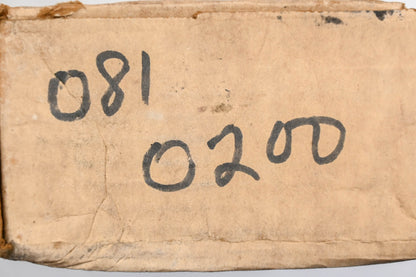 081
0200